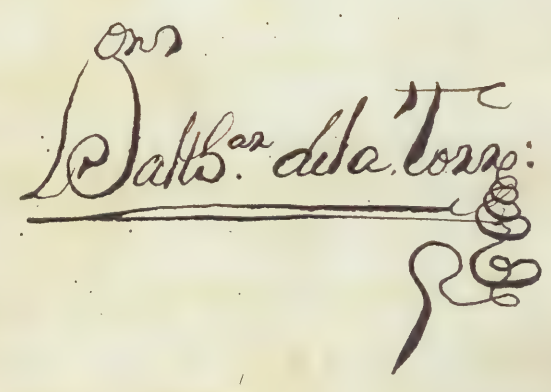 Balthar. de la Torre: